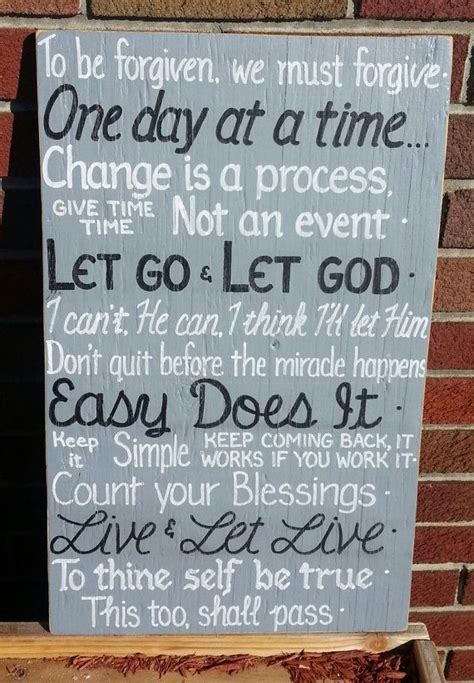 To be forgiven, we must forgive.
One day at a time...
Change is a process,
GIVE TIME TIME Not an event.
LET GO & LET GOD.
I can't, He can, I think I'll let Him
Don't quit before the miracle happens
Easy Does It.
Keep it Simple KEEP COMING BACK, IT WORKS IF YOU WORK IT.
Count your Blessings.
Live & Let Live.
To thine self be true.
This too, shall pass.